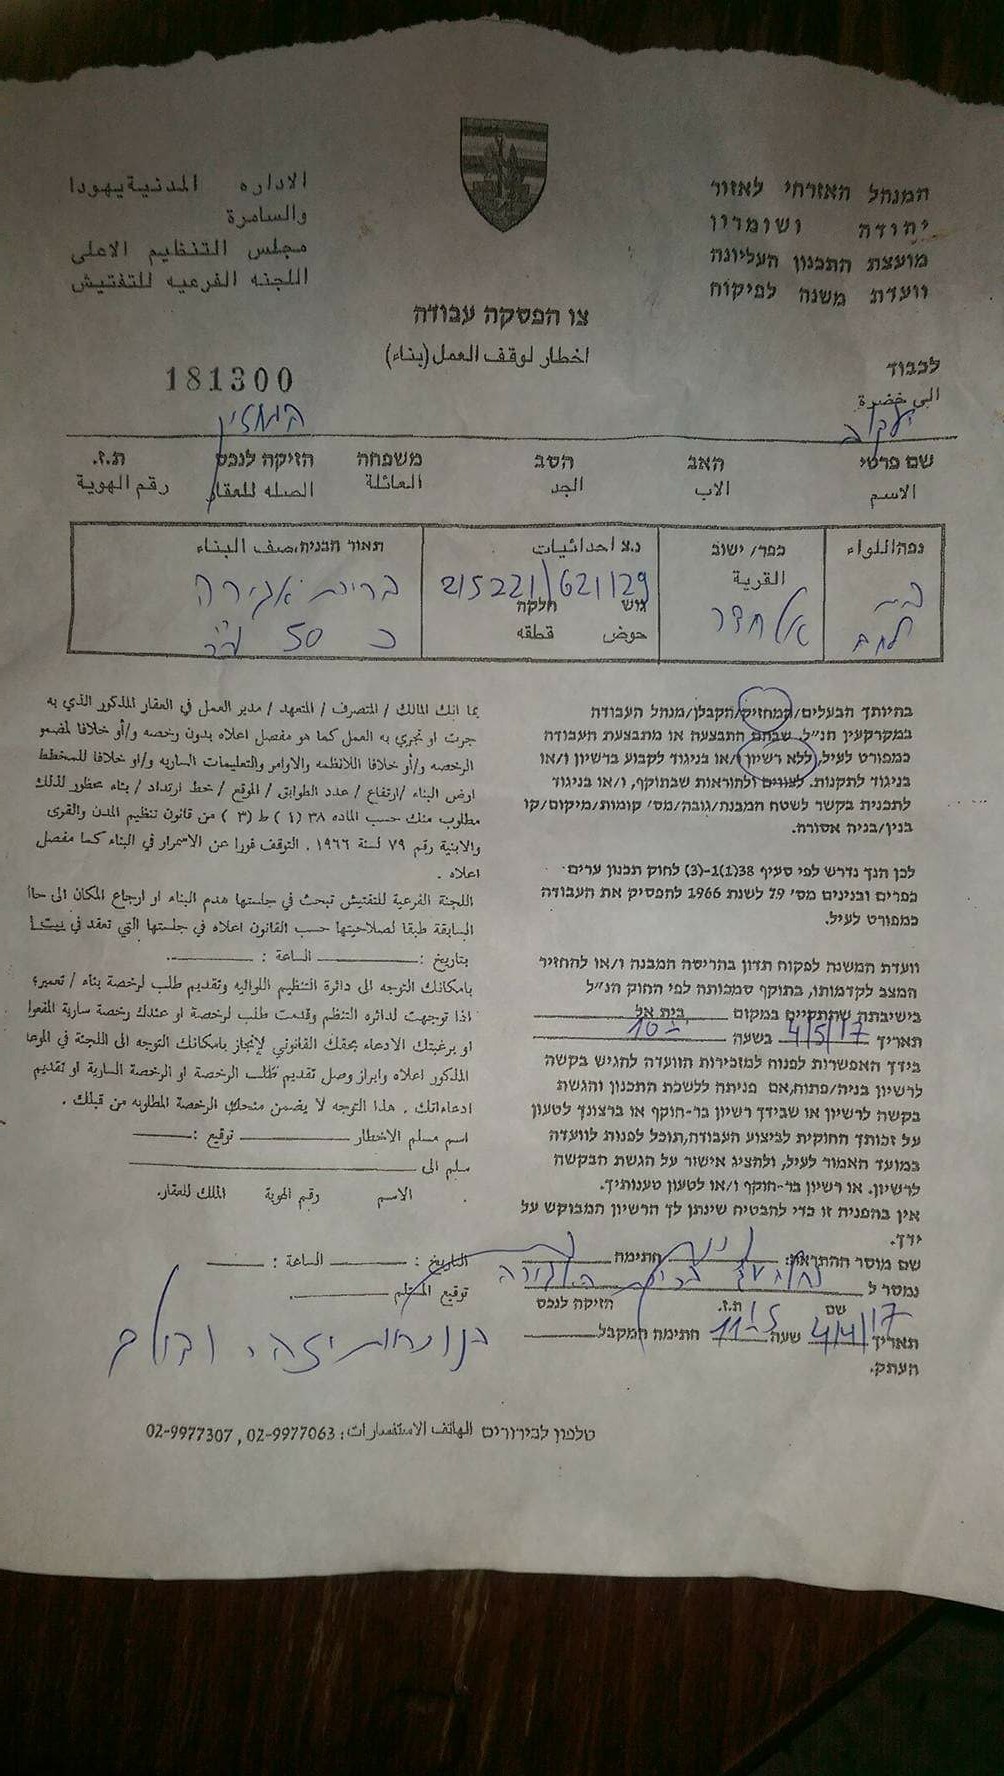 המנהל האזרחי לאזור
יהודה ושומרון
מועצת התכנון העליונה
וועדת משנה לפיקוח
الاداره المدنية يهودا
والسامرة
مجلس التنظيم الاعلى
اللجنه الفرعيه للتفتيش
צו הפסקה עבודה
اخطار لوقف العمل (بناء)
181300
לכבוד
الى حضرة
המחזיק
שם פרטי האב הסב משפחה הזיקה לנכס ת.ז.
الاسم الاب الجد العائلة الصله للعقار رقم الهوية
נפה اللواء כפר/ ישוב נ.צ احداثيات תאור הבניה، صف البناء
القرية
בית לחם
אל חדר
215221/621129
גוש חלקה
حوض قطقه
בריכת אגירה
כ 50 מ"ר
בהיותך הבעלים/המחזיק/הקבלן/מנהל העבודה
במקרקעין הנ"ל. שבהם התבצעה או מתבצעת העבודה
כמפורט לעיל, ללא רשיון ו/או בניגוד לקבוע ברשיון ו/או
בניגוד לתקנות. לצווים ולהוראות שבתוקף, ו/או בניגוד
לתכנית בקשר לשטח המבנה/גובה/מס' קומות/מיקום/קו
בנין/בניה אסורה.
לכן הנך נדרש לפי סעיף 38(1)1-(3) לחוק תכנון ערים
כפרים ובנינים מס' 79 לשנת 1966 להפסיק את העבודה
כמפורט לעיל.
וועדת המשנה לפקוח תדון בהריסת המבנה ו/או להחזיר
המצב לקדמותו, בתוקף סמכותה לפי החוק הנ"ל
בישיבתה שתתקיים במקום בית אל
תאריך 4/5/17 בשעה 10
בידך האפשרות לפנות למזכירות הוועדה להגיש בקשה
לרשיון בניה/פתוח, אם פניתה ללשכת התכנון והגשת
בקשה לרשיון או שבידך רשיון בר-תוקף או ברצונך לטעון
על זכותך החוקית לביצוע העבודה, תוכל לפנות לוועדה
במועד האמור לעיל, ולהציג אישור על הגשת הבקשה
לרשיון. או רשיון בר-תוקף ו/או לטעון טענותיך.
אין בהפניה זו כדי להבטיח שינתן לך הרשיון המבוקש על
ידך.
שם מוסר ההתראה: חתימה
נמסר ל
שם ת.ז. הזיקה לנכס
תאריך 4/4/17 שעה 11 חתימה המקבל
העתק.
بما انك المالك / المتصرف / المتعهد / مدير العمل في العقار المذكور الذي به
جرت او تجري به العمل كما هو مفصل اعلاه بدون رخصه و/أو خلافا لمضمو
الرخصه و/أو خلافا اللانظمه والاوامر والتعليمات الساريه و/او خلافا للمخطط
ارض البناء /ارتفاع / عدد الطوابق / الموقع / خط ارتداد / بناء محظور لذلك
مطلوب منك حسب الماده ٣٨ (١) ط (٣) من قانون تنظيم المدن والقرى
والابنية رقم ٧٩ لسنة ١٩٦٦ . التوقف فورا عن الاسمرار في البناء كما مفصل
اعلاه .
اللجنة الفرعية للتفتيش تبحث في جلستها هدم البناء او ارجاع المكان الى حا
السابقة طبقا لصلاحيتها حسب القانون اعلاه في جلستها التي تعقد في بيت ا
بتاريخ : الساعة :
بامكانك التوجه الى دائرة التنظيم اللوائيه وتقديم طلب لرخصة بناء / تعمير؛
اذا توجهت لدائره التنظم وقدمت طلب لرخصة او عندك رخصة سارية المفعوا
او برغبتك الادعاء بحقك القانوني لإنجاز بامكانك التوجه الى اللجنة في الموعا
المذكور اعلاه وابراز وصل تقديم طلب الرخصة او الرخصة السارية او تقديم
ادعاءاتك . هذا التوجه لا يضمن منحك الرخصة المطلوبه من قبلك .
اسم مسلم الاخطار توقيع :
سلم الى
الاسم رقم الهوية الملك للعقار.
التاريخ : الساعة :
توقيع المستلم
טלפון לבירורים الهاتف الاستفسارات: 02-9977063 , 02-9977307